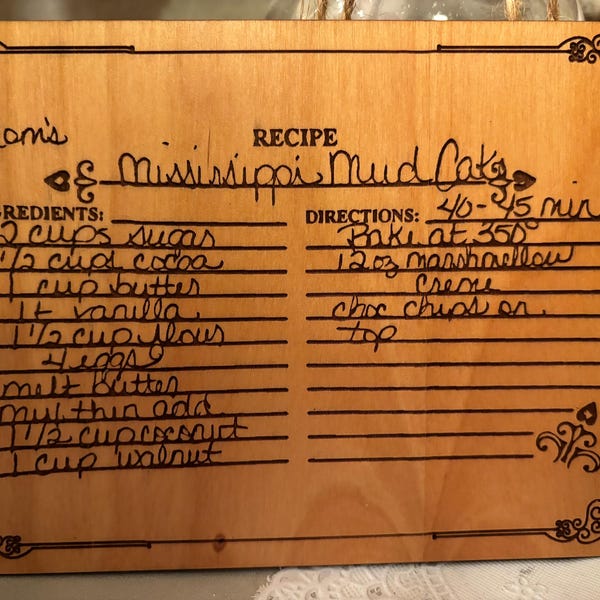 om's
RECIPE
Mississippi Mud Cake
REDIENTS:
2 cups sugar
1/2 cups cocoa
1 cup butter
1t vanilla
1 1/2 cup flour
4 eggs
melt butter
mix, then add
1 1/2 cup coconut
1 cup walnut
DIRECTIONS: 40-45 min
Bake at 350°
12 oz marshmellow
creme
choc chips on
top